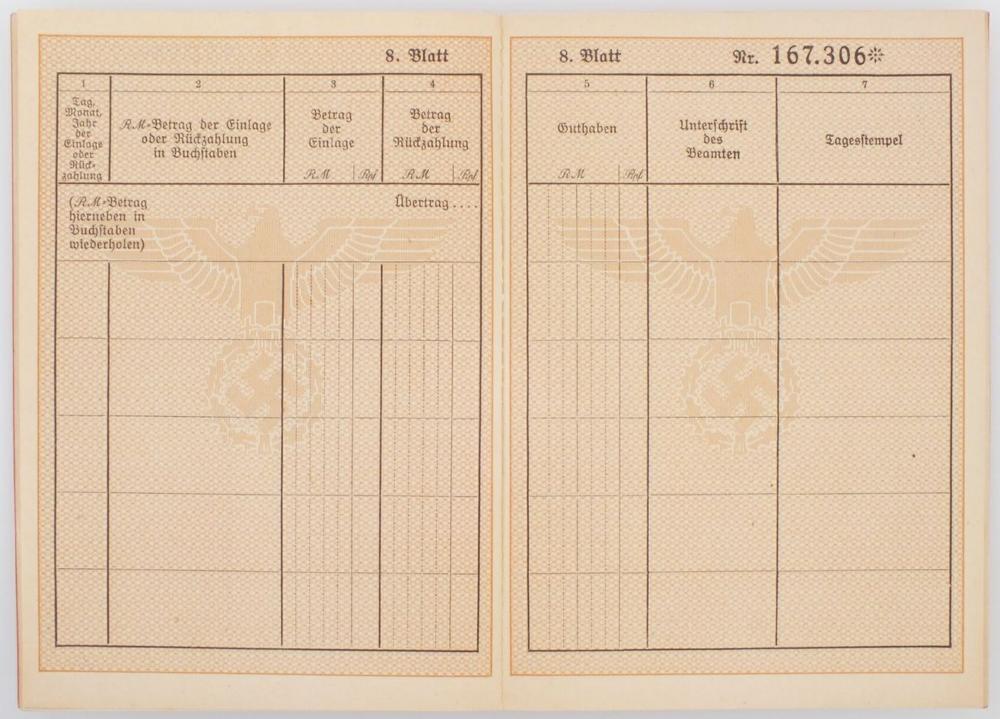 8. Blatt
1
2
3
4
Tag,
Monat,
Jahr
der
Einlage
oder
Rück-
zahlung
RM-Betrag der Einlage
oder Rückzahlung
in Buchstaben
Betrag
der
Einlage
RM Rpf
Betrag
der
Rückzahlung
RM Rpf
(RM-Betrag
hierneben in
Buchstaben
wiederholen)
Übertrag....
8. Blatt
Nr. 167.306*
5
6
7
Guthaben
RM Rpf
Unterschrift
des
Beamten
Tagesstempel